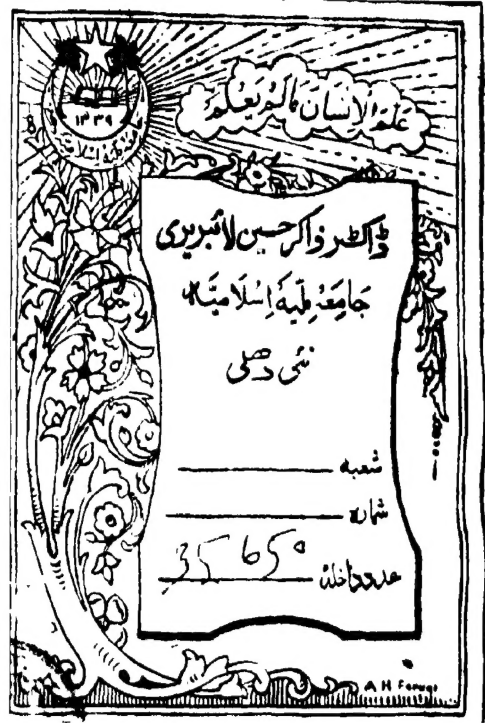 علم الانسان مالم یعلم
۱۳۳۹
ڈاکٹر ذاکر حسین لائبریری
جامعہ ملیہ اسلامیہ
نئی دھلی
شعبہ
شمارہ
عدد داخلہ
A H Faruqi